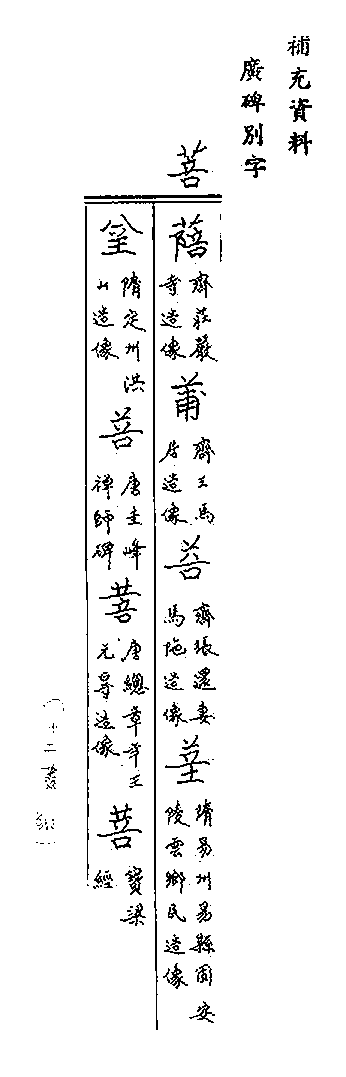 補充資料
廣碑別字
菩
蓓 齊莊嚴寺造像 莆 齊王馬居造像 菩 齊張還妻馬陁造像 𦬇 隋易州易縣固安陵雲鄉民造像
隋定州洪山造像 菩 唐圭峰禪師碑 菩 唐總章年王元導造像 菩 寶梁經
(十二畫